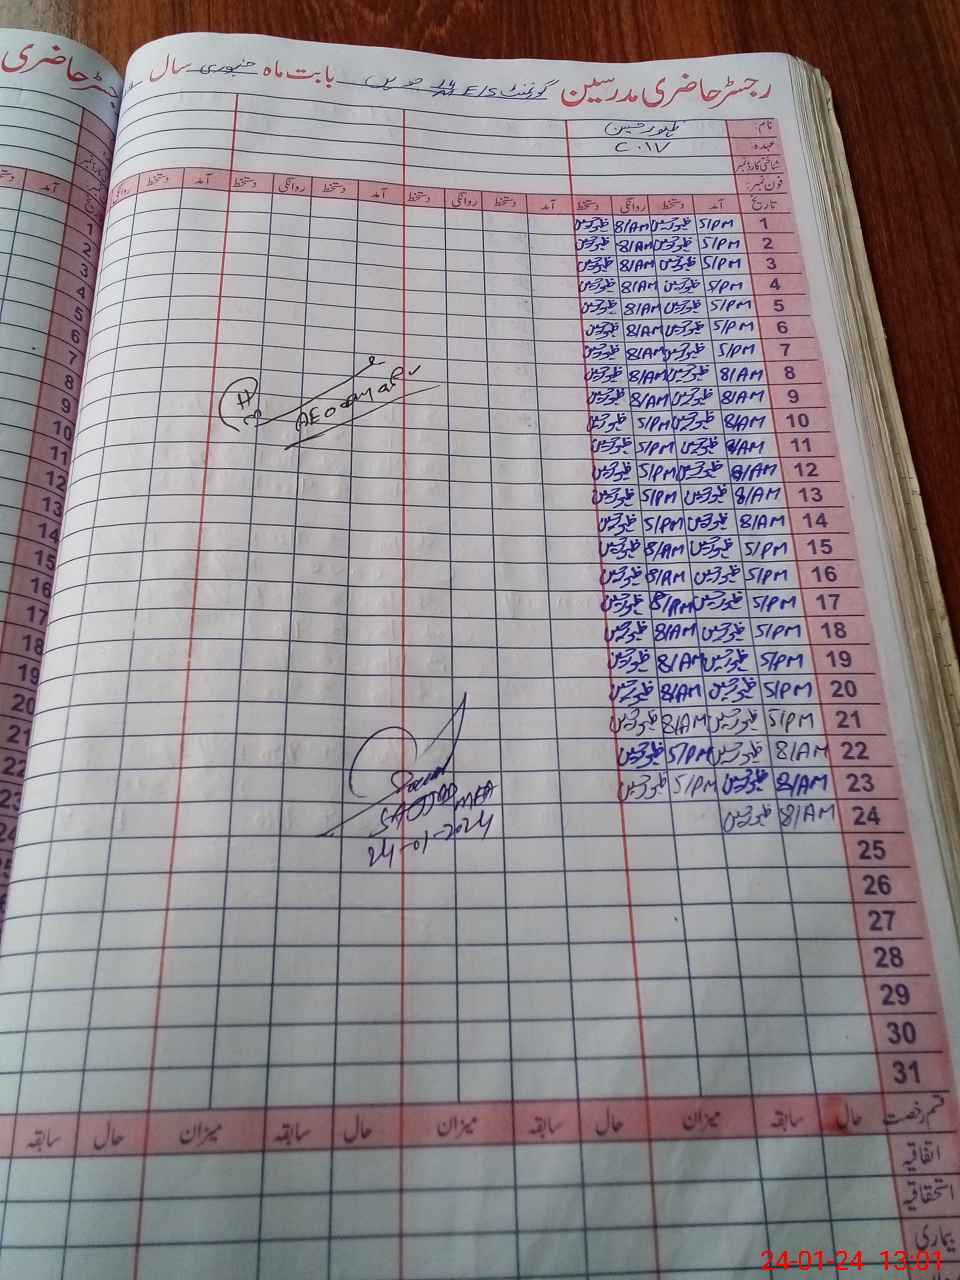 رجسٹر حاضری مدرسین گورنمنٹ E/S بابت ماہ جنوری سال
نام: ظہور حسین
عہدہ C.O IV
شناختی کارڈ نمبر
فون نمبر:
تاریخ آمد دستخط روانگی دستخط آمد دستخط روانگی دستخط آمد دستخط روانگی دستخط آمد دستخط روانگی
1 5/PM ظہور حسین 8/AM ظہور حسین
2 5/PM ظہور حسین 8/AM ظہور حسین
3 5/PM ظہور حسین 8/AM ظہور حسین
4 5/PM ظہور حسین 8/AM ظہور حسین
5 5/PM ظہور حسین 8/AM ظہور حسین
6 5/PM ظہور حسین 8/AM ظہور حسین
7 5/PM ظہور حسین 8/AM ظہور حسین
8 8/AM ظہور حسین 8/AM ظہور حسین
9 8/AM ظہور حسین 8/AM ظہور حسین
10 8/AM ظہور حسین 5/PM ظہور حسین
11 8/AM ظہور حسین 5/PM ظہور حسین
12 8/AM ظہور حسین 5/PM ظہور حسین
13 8/AM ظہور حسین 5/PM ظہور حسین
14 8/AM ظہور حسین 5/PM ظہور حسین
15 5/PM ظہور حسین 8/AM ظہور حسین
16 5/PM ظہور حسین 8/AM ظہور حسین
17 5/PM ظہور حسین 8/AM ظہور حسین
18 5/PM ظہور حسین 8/AM ظہور حسین
19 5/PM ظہور حسین 8/AM ظہور حسین
20 5/PM ظہور حسین 8/AM ظہور حسین
21 5/PM ظہور حسین 8/AM ظہور حسین
22 8/AM ظہور حسین 5/PM ظہور حسین
23 8/AM ظہور حسین 5/PM ظہور حسین
24 8/AM ظہور حسین
25
26
27
28
29
30
31
AEO
SAJJAD MEA
24-01-2024
قسم رخصت حال سابقہ میزان حال سابقہ میزان حال سابقہ میزان حال سابقہ
اتفاقیہ
استحقاقیہ
بیماری
24-01-24 13:01